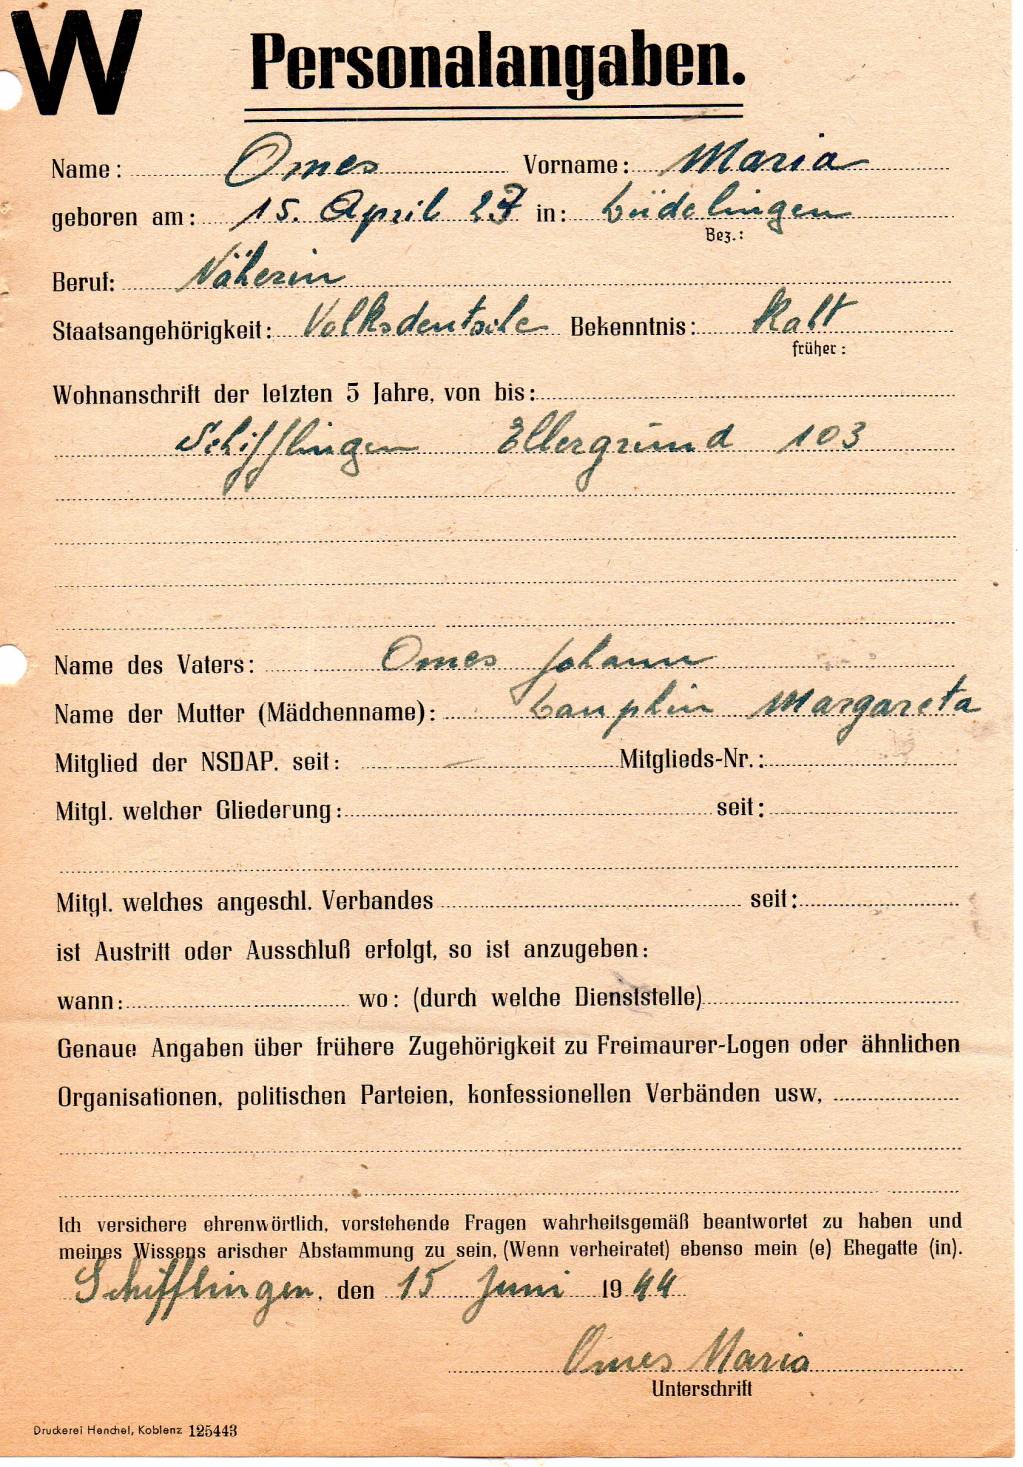 W
Personalangaben.
Name: Omes Vorname: Maria
geboren am: 15. April 27 in: Lüdelingen
Bez.:
Beruf: Näherin
Staatsangehörigkeit: Volksdeutsche Bekenntnis: Kath
früher:
Wohnanschrift der letzten 5 Jahre, von bis:
Schifflingen Ellergrund 103
Name des Vaters: Omes Johann
Name der Mutter (Mädchenname): Margareta
Mitglied der NSDAP. seit: — Mitglieds-Nr.:
Mitgl. welcher Gliederung: seit:
Mitgl. welches angeschl. Verbandes seit:
ist Austritt oder Ausschluß erfolgt, so ist anzugeben:
wann: wo: (durch welche Dienststelle)
Genaue Angaben über frühere Zugehörigkeit zu Freimaurer-Logen oder ähnlichen
Organisationen, politischen Parteien, konfessionellen Verbänden usw,
Ich versichere ehrenwörtlich, vorstehende Fragen wahrheitsgemäß beantwortet zu haben und
meines Wissens arischer Abstammung zu sein, (Wenn verheiratet) ebenso mein (e) Ehegatte (in).
Schifflingen, den 15 Juni 1944
Omes Maria
Unterschrift
Druckerei Henchel, Koblenz 125443